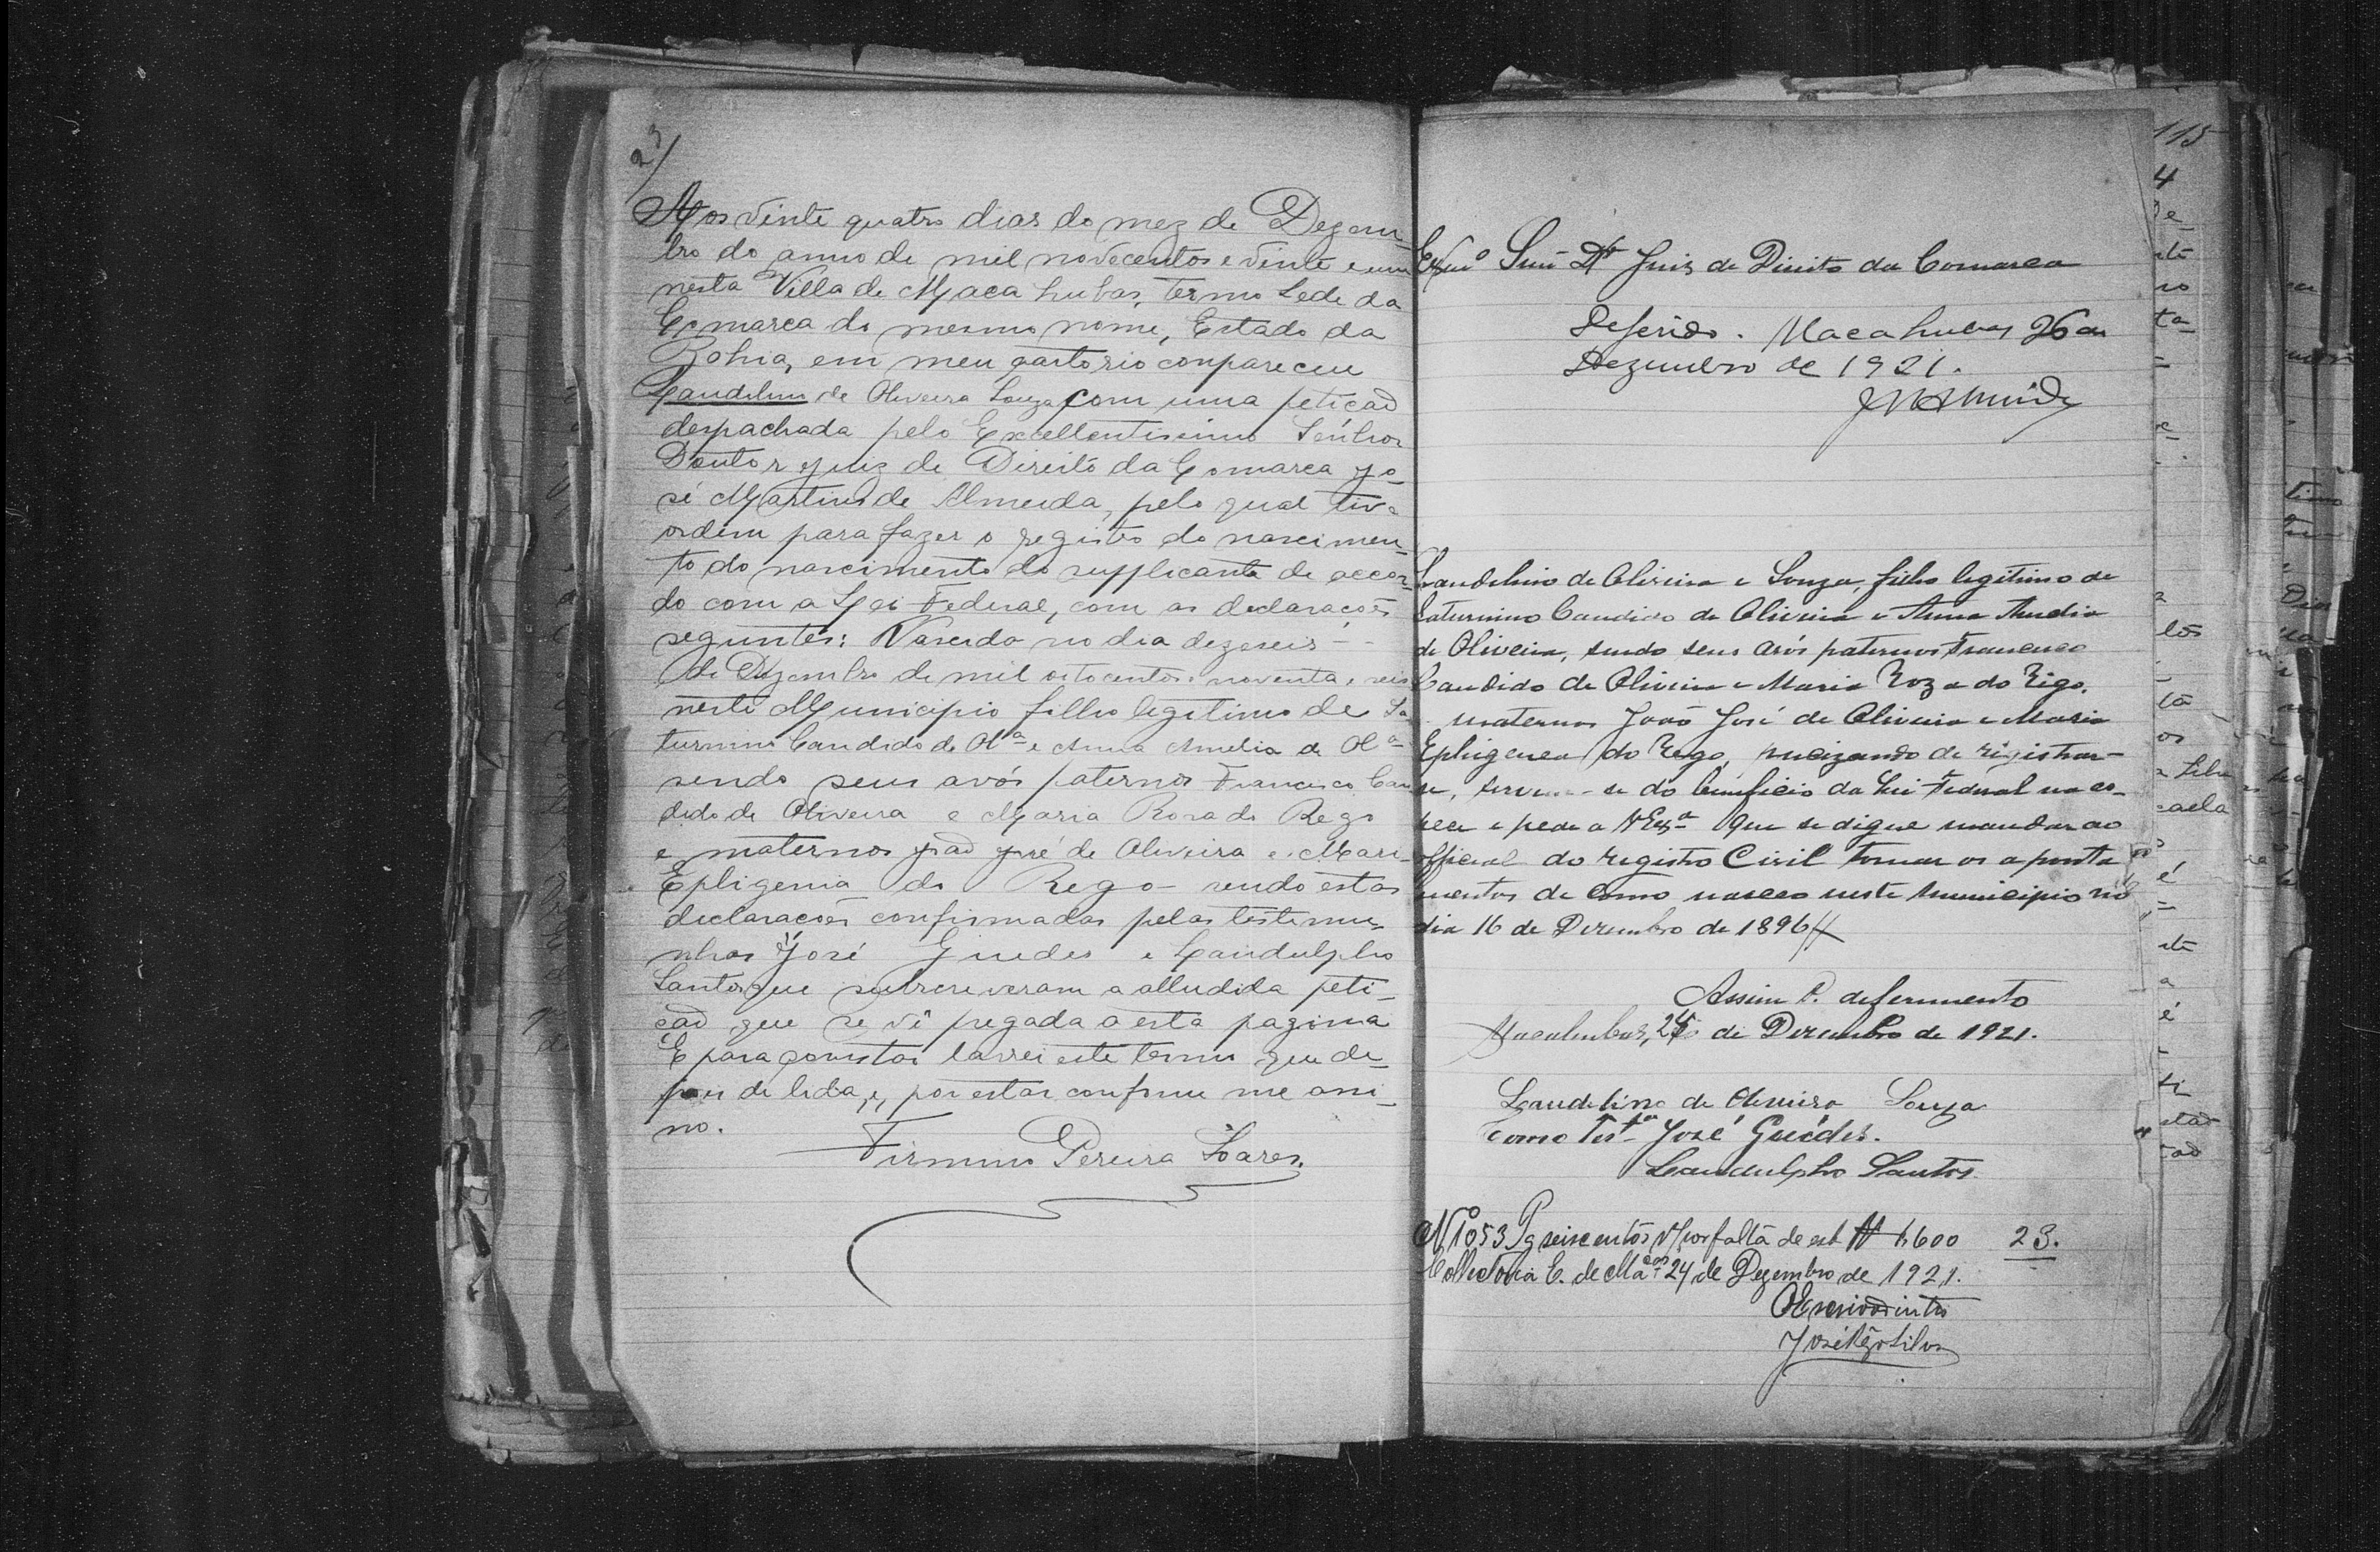 23
Aos vinte quatro dias do mez de Dezem-
bro do anno de mil novecentos e vinte e um
nesta Villa de Macahubas, termo Sede da
Comarca do mesmo nome, Estado da
Bahia, em meu cartorio compareceu
Laudelino de Oliveira Souza com uma petição
despachada pelo Excellentissimo Senhor
Doutor Juiz de Direito da Comarca Jo-
sé Martins de Almeida, pelo qual tive
ordem para fazer o registro do nascimen-
to do nascimento do supplicante de accor-
do com a Lei Federal, com as declarações
seguntes: Nascido no dia dezeseis -
de Dezembro de mil oitocentos e noventa e seis
neste Municipio filho legitimo de Sa
turnino Candido de Olª e Anna Amelia de Olª
sendo seus avós paternos Francisco Can
dido de Oliveira e Maria Rosa do Rego
e maternos João José de Oliveira e Mari-
Epligenia do Rego - sendo estas
declarações confirmadas pelas testemu-
nhas José Guedes e Laudulpho
Santos que subscreveram a alludida peti-
ção que se vê pregada a esta pagina
E para constar lavrei este termo que de-
pois de lida, e, por estar conforme me assi-
no.
Firmino Pereira Soares.
Exmº Snr. Dr Juiz de Direito da Comarca
Deferido. Macahubas 26 de
Dezembro de 1921.
JMAlmeida
Laudelino de Oliveira e Souza, filho legitimo de
Saturnino Candido de Oliveira e Anna Amelia
de Oliveira, sendo seus avós paternos Francisco
Candido de Oliveira e Maria Roza do Rego,
maternos João José de Oliveira e Maria
Ephigenea do Rego, precizando de registrar-
se, serve-se do beneficio da Lei Federal
e pede a VExª que se digne mandar ao
official do registro Civil tomar os aponta
mentos de como nasceo neste municipio no
dia 16 de Dezembro de 1896
Assim P. deferimento
Macahubas, 24 de Dezembro de 1921.
Laudelino de Oliveira Souza
Como Testª José Guédes.
Laudulpho Santos.
Nº 1053 Pg seiscentos rs por falta de est. $600 23.
Collectoria E. de Macas 24 de Dezembro de 1921.
O Escrivão intro
José Rêgo Silva
115
4